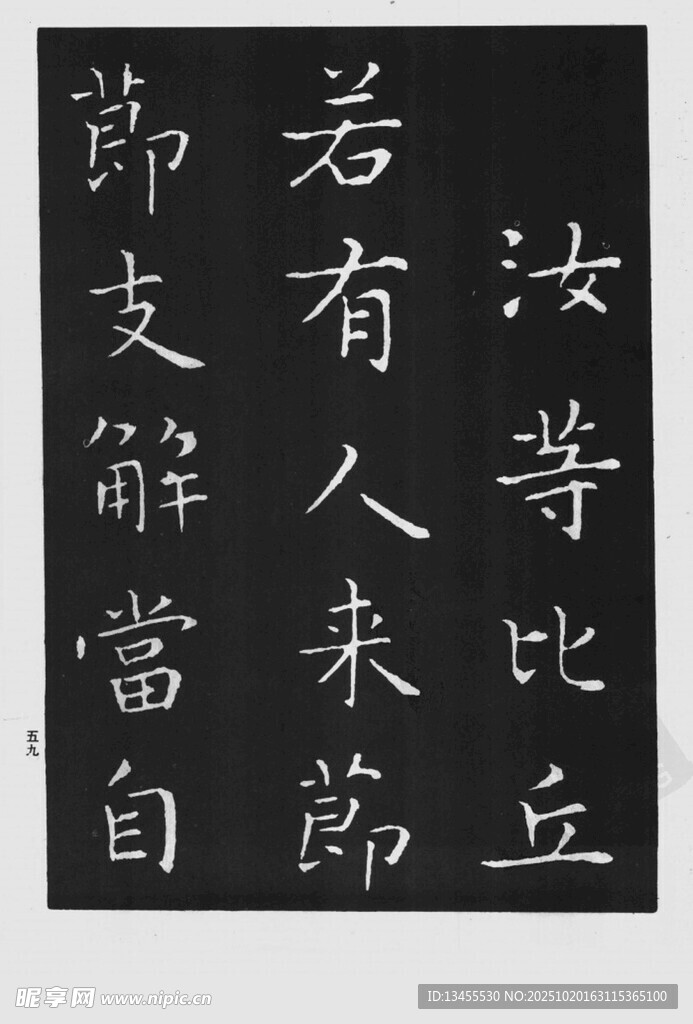 汝等比丘
若有人来莭
莭支解當自
五九
昵享网 www.nipic.cn
ID:13455530 NO:20251020163115365100